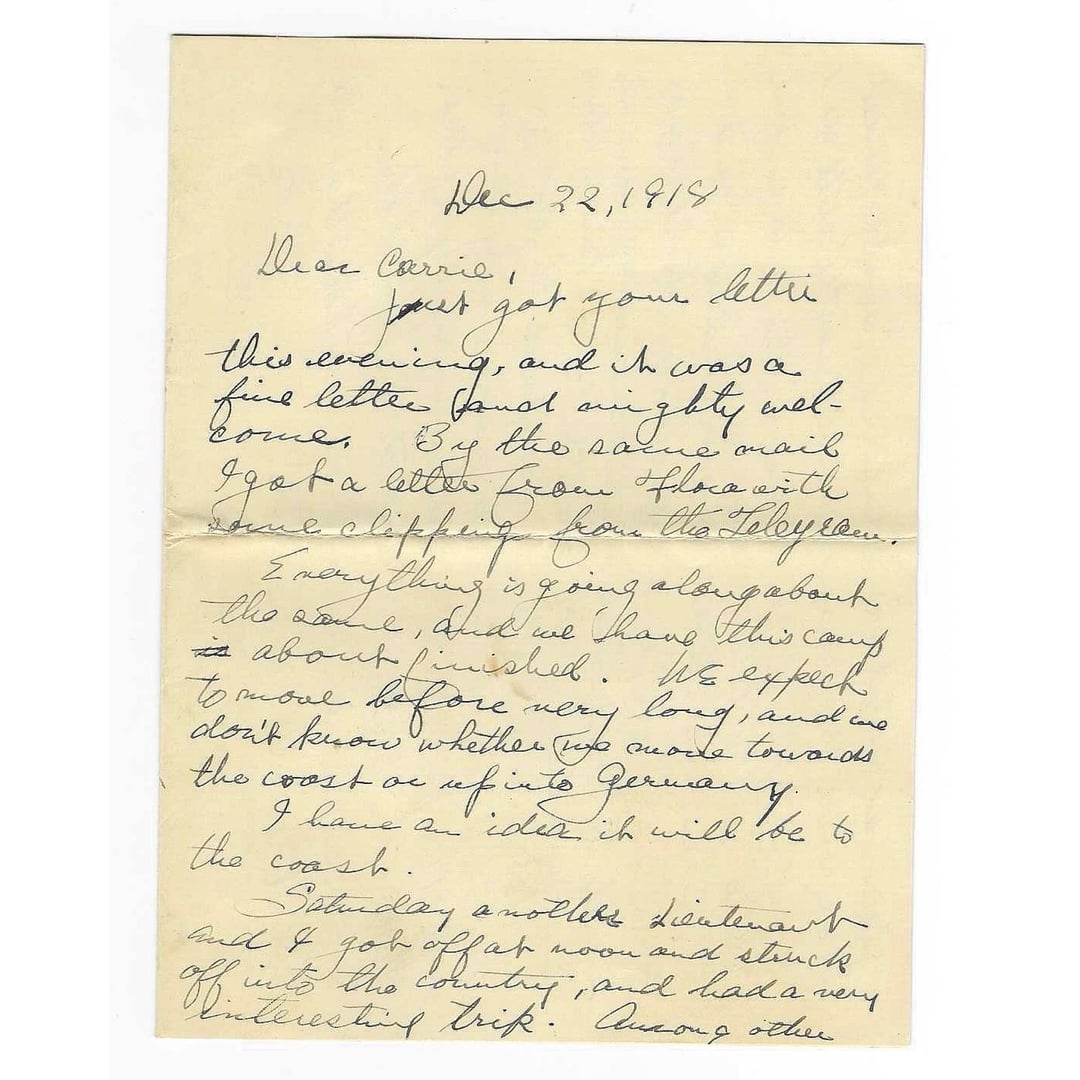 Dec 22, 1918
Dear Carrie,
Just got your letter
this evening, and it was a
fine letter and mighty wel-
come. By the same mail
I got a letter from Flora with
some clipping from the Telegram.
Everything is going along about
the same, and we have this camp
is about finished. We expect
to move before very long, and we
don't know whether we move towards
the coast or up into Germany.
I have an idea it will be to
the coast.
Saturday another Lieutenant
and I got off at noon and struck
off into the country, and had a very
interesting trip. Among other